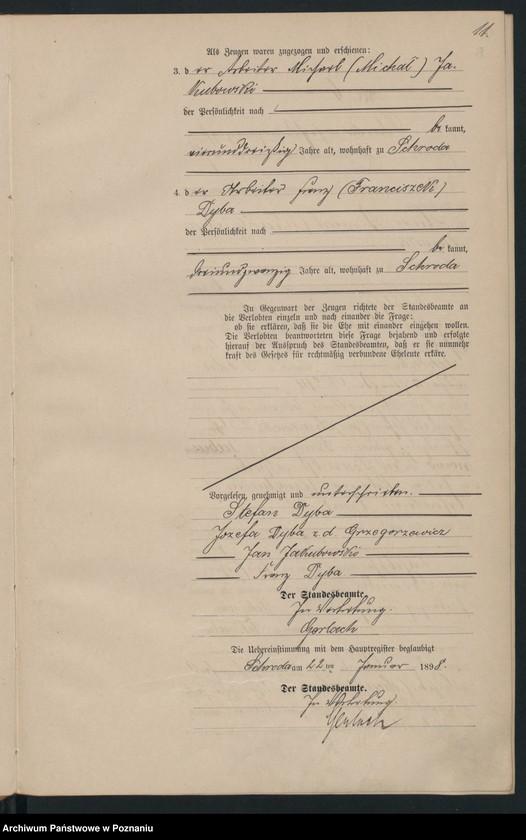 11.
Als Zeugen waren zugezogen und erschienen:
3. der Arbeiter Michael (Michał) Ja-
kubowski
der Persönlichkeit nach
be kannt,
vierunddreißig Jahre alt, wohnhaft zu Schroda
4. der Arbeiter Franz (Franciszek)
Dyba
der Persönlichkeit nach
be kannt,
dreiundzwanzig Jahre alt, wohnhaft zu Schroda
In Gegenwart der Zeugen richtete der Standesbeamte an
die Verlobten einzeln und nach einander die Frage:
ob sie erklären, daß sie die Ehe mit einander eingehen wollen.
Die Verlobten beantworteten diese Frage bejahend und erfolgte
hierauf der Ausspruch des Standesbeamten, daß er sie nunmehr
kraft des Gesetzes für rechtmäßig verbundene Eheleute erkläre.
Vorgelesen, genehmigt und unterschrieben.
Stefan Dyba
Jozefa Dyba z d. Grzegorzewicz
Jan Jakubowski
Franz Dyba
Der Standesbeamte.
In Vertretung.
Gerlach
Die Uebereinstimmung mit dem Hauptregister beglaubigt
Schroda am 22ten Januar 1898.
Der Standesbeamte.
In Vertretung.
Gerlach
Archiwum Państwowe w Poznaniu